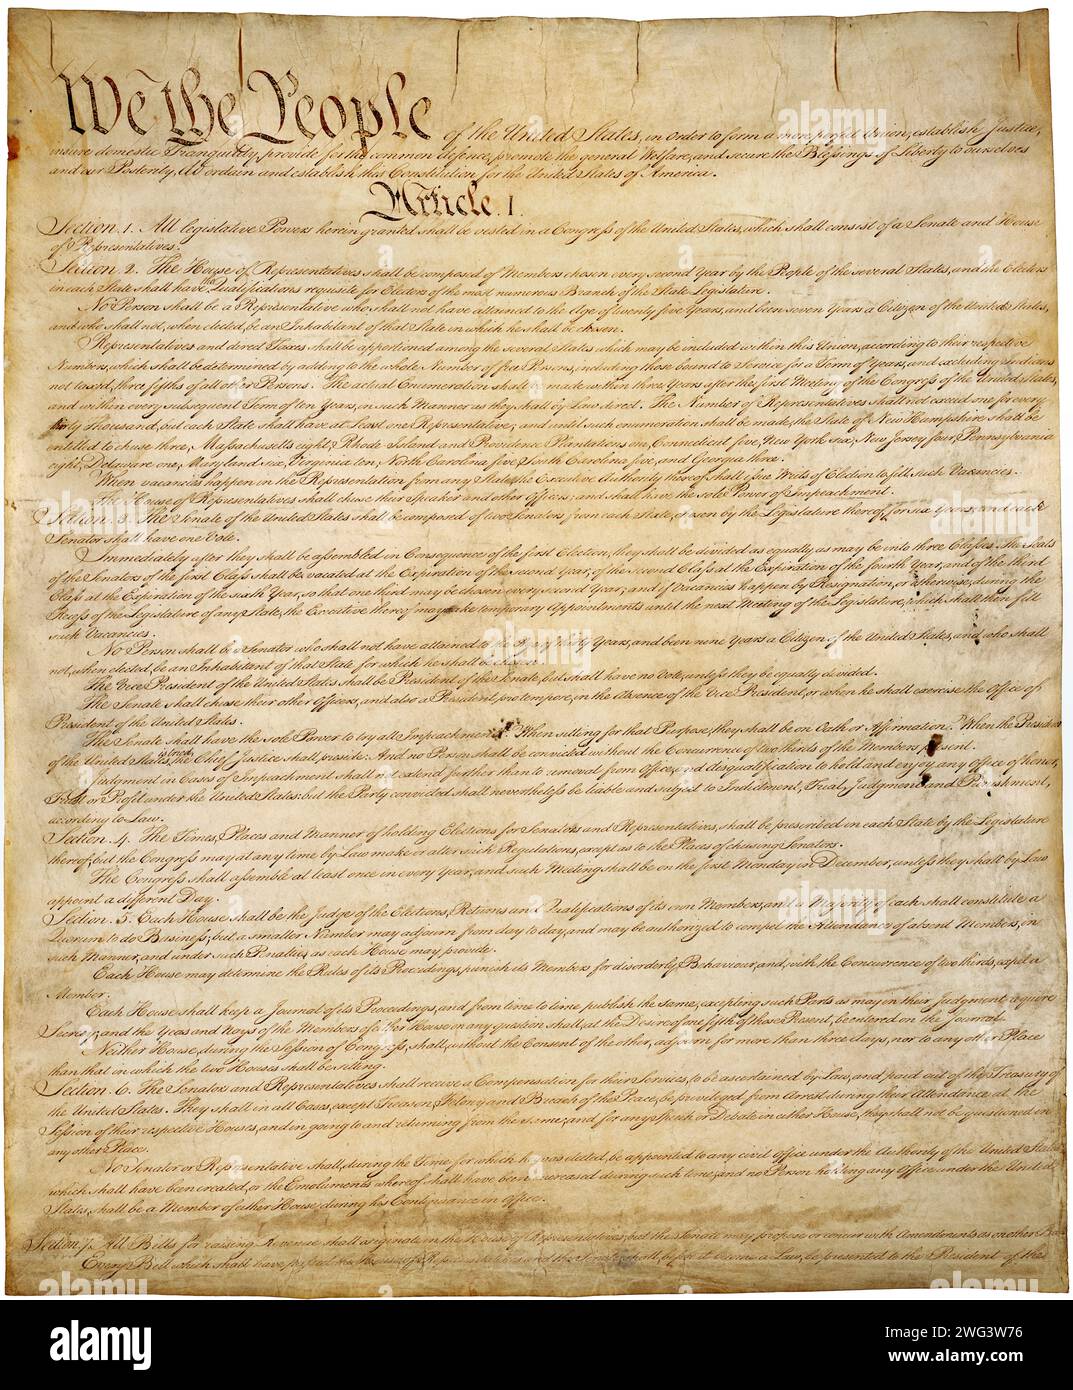 We the People of the United States, in Order to form a more perfect Union, establish Justice,
insure domestic Tranquility, provide for the common defence, promote the general Welfare, and secure the Blessings of Liberty to ourselves
and our Posterity, do ordain and establish this Constitution for the United States of America.
Article. I.
Section. 1. All legislative Powers herein granted shall be vested in a Congress of the United States, which shall consist of a Senate and House
of Representatives.
Section. 2. The House of Representatives shall be composed of Members chosen every second Year by the People of the several States, and the Electors
in each State shall have the Qualifications requisite for Electors of the most numerous Branch of the State Legislature.
No Person shall be a Representative who shall not have attained to the Age of twenty five Years, and been seven Years a Citizen of the United States,
and who shall not, when elected, be an Inhabitant of that State in which he shall be chosen.
Representatives and direct Taxes shall be apportioned among the several States which may be included within this Union, according to their respective
Numbers, which shall be determined by adding to the whole Number of free Persons, including those bound to Service for a Term of Years, and excluding Indians
not taxed, three fifths of all other Persons. The actual Enumeration shall be made within three Years after the first Meeting of the Congress of the United States,
and within every subsequent Term of ten Years, in such Manner as they shall by Law direct. The Number of Representatives shall not exceed one for every
thirty Thousand, but each State shall have at Least one Representative; and until such enumeration shall be made, the State of New Hampshire shall be
entitled to chuse three, Massachusetts eight, Rhode Island and Providence Plantations one, Connecticut five, New York six, New Jersey four, Pennsylvania
eight, Delaware one, Maryland six, Virginia ten, North Carolina five, South Carolina five, and Georgia three.
When vacancies happen in the Representation from any State, the Executive Authority thereof shall issue Writs of Election to fill such Vacancies.
The House of Representatives shall chuse their Speaker and other Officers; and shall have the sole Power of Impeachment.
Section. 3. The Senate of the United States shall be composed of two Senators from each State, chosen by the Legislature thereof, for six Years; and each
Senator shall have one Vote.
Immediately after they shall be assembled in Consequence of the first Election, they shall be divided as equally as may be into three Classes. The Seats
of the Senators of the first Class shall be vacated at the Expiration of the second Year, of the second Class at the Expiration of the fourth Year, and of the third
Class at the Expiration of the sixth Year, so that one third may be chosen every second Year; and if Vacancies happen by Resignation, or otherwise, during the
Recess of the Legislature of any State, the Executive thereof may make temporary Appointments until the next Meeting of the Legislature, which shall then fill
such Vacancies.
No Person shall be a Senator who shall not have attained to the Age of thirty Years, and been nine Years a Citizen of the United States, and who shall
not, when elected, be an Inhabitant of that State for which he shall be chosen.
The Vice President of the United States shall be President of the Senate, but shall have no Vote, unless they be equally divided.
The Senate shall chuse their other Officers, and also a President pro tempore, in the Absence of the Vice President, or when he shall exercise the Office of
President of the United States.
The Senate shall have the sole Power to try all Impeachments. When sitting for that Purpose, they shall be on Oath or Affirmation. When the President
of the United States is tried, the Chief Justice shall preside: And no Person shall be convicted without the Concurrence of two thirds of the Members present.
Judgment in Cases of Impeachment shall not extend further than to removal from Office, and disqualification to hold and enjoy any Office of honor,
Trust or Profit under the United States: but the Party convicted shall nevertheless be liable and subject to Indictment, Trial, Judgment and Punishment,
according to Law.
Section. 4. The Times, Places and Manner of holding Elections for Senators and Representatives, shall be prescribed in each State by the Legislature
thereof; but the Congress may at any time by Law make or alter such Regulations, except as to the Places of chusing Senators.
The Congress shall assemble at least once in every Year, and such Meeting shall be on the first Monday in December, unless they shall by Law
appoint a different Day.
Section. 5. Each House shall be the Judge of the Elections, Returns and Qualifications of its own Members, and a Majority of each shall constitute a
Quorum to do Business; but a smaller Number may adjourn from day to day, and may be authorized to compel the Attendance of absent Members, in
such Manner, and under such Penalties as each House may provide.
Each House may determine the Rules of its Proceedings, punish its Members for disorderly Behaviour, and, with the Concurrence of two thirds, expel a
Member.
Each House shall keep a Journal of its Proceedings, and from time to time publish the same, excepting such Parts as may in their Judgment require
Secrecy; and the Yeas and Nays of the Members of either House on any question shall, at the Desire of one fifth of those Present, be entered on the Journal.
Neither House, during the Session of Congress, shall, without the Consent of the other, adjourn for more than three days, nor to any other Place
than that in which the two Houses shall be sitting.
Section. 6. The Senators and Representatives shall receive a Compensation for their Services, to be ascertained by Law, and paid out of the Treasury of
the United States. They shall in all Cases, except Treason, Felony and Breach of the Peace, be privileged from Arrest during their Attendance at the
Session of their respective Houses, and in going to and returning from the same; and for any Speech or Debate in either House, they shall not be questioned in
any other Place.
No Senator or Representative shall, during the Time for which he was elected, be appointed to any civil Office under the Authority of the United States,
which shall have been created, or the Emoluments whereof shall have been encreased during such time; and no Person holding any Office under the United
States, shall be a Member of either House during his Continuance in Office.
Section. 7. All Bills for raising Revenue shall originate in the House of Representatives; but the Senate may propose or concur with Amendments as on other Bills.
Every Bill which shall have passed the House of Representatives and the Senate, shall, before it become a Law, be presented to the President of the
alamy
Image ID: 2WG3W76
www.alamy.com